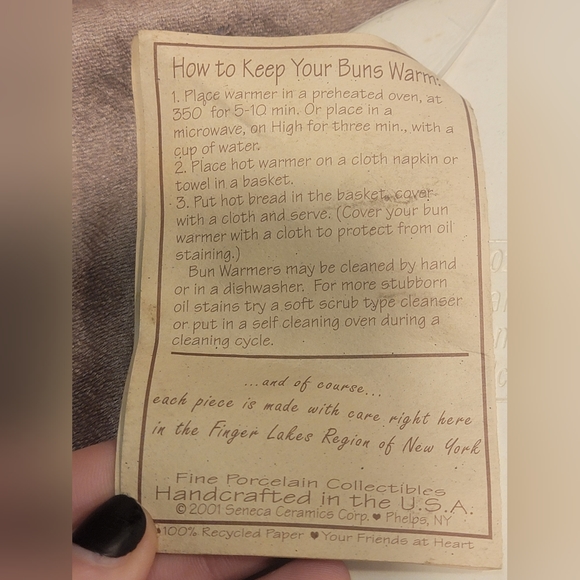 How to Keep Your Buns Warm:
1. Place warmer in a preheated oven, at
350° for 5-10 min. Or place in a
microwave, on High for three min., with a
cup of water.
2. Place hot warmer on a cloth napkin or
towel in a basket.
3. Put hot bread in the basket, cover
with a cloth and serve. (Cover your bun
warmer with a cloth to protect from oil
staining.)
Bun Warmers may be cleaned by hand
or in a dishwasher. For more stubborn
oil stains try a soft scrub type cleanser
or put in a self cleaning oven during a
cleaning cycle.
...and of course...
each piece is made with care right here
in the Finger Lakes Region of New York
Fine Porcelain Collectibles
Handcrafted in the U.S.A.
©2001 Seneca Ceramics Corp. ♥ Phelps, NY
100% Recycled Paper ♥ Your Friends at Heart